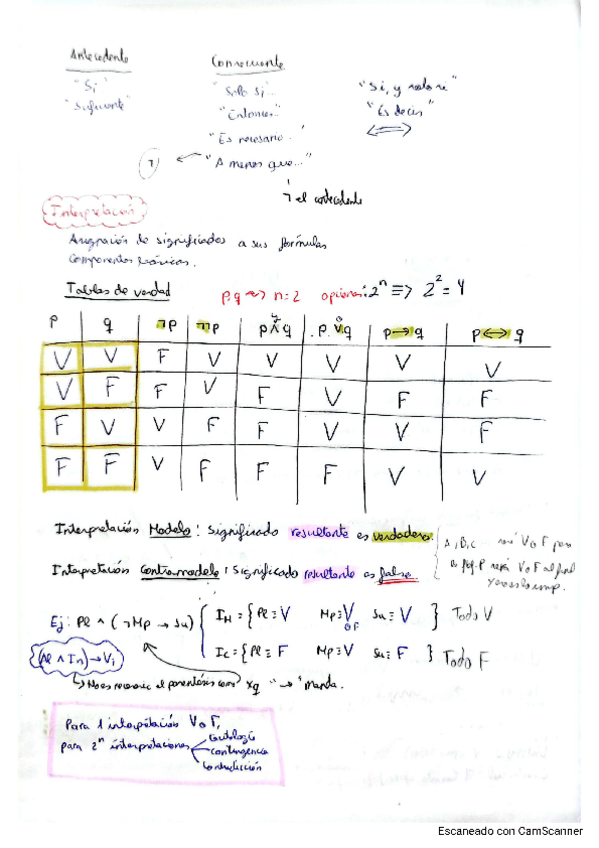 Antecedente Consecuente
"Si" "Solo si... "Si, y solo si"
"Suficiente" "Entonces" "Es decir"
"Es necesario..." ⟺
¬ ← "A menos que..."
¬ el antecedente
Interpretación
Asignación de significados a sus fórmulas
componentes básicas.
Tablas de verdad p, q ⇒ n=2 opciones: 2ⁿ ⟹ 2² = 4
p q ¬p ¬¬p p∧q p∨q p→q p↔q
V V F V V V V V
V F F V F V F F
F V V F F V V F
F F V F F F V V
Interpretación Modelo: Significado resultante es verdadero. A,B,C
Interpretación Contramodelo: Significado resultante es falso. V o F al final
Ej: Pl ∧ (¬Mp → Su) { I_M = {Pl ≡ V Mp ≡ V o F Su ≡ V } Todo V
I_C = {Pl ≡ F Mp ≡ V Su ≡ F } Todo F
(Al ∧ In) → Vi
↳ No es necesario el paréntesis xq "→" manda.
Para 1 interpretación V o F,
para 2ⁿ interpretaciones tautología
contingencia
contradicción
Escaneado con CamScanner